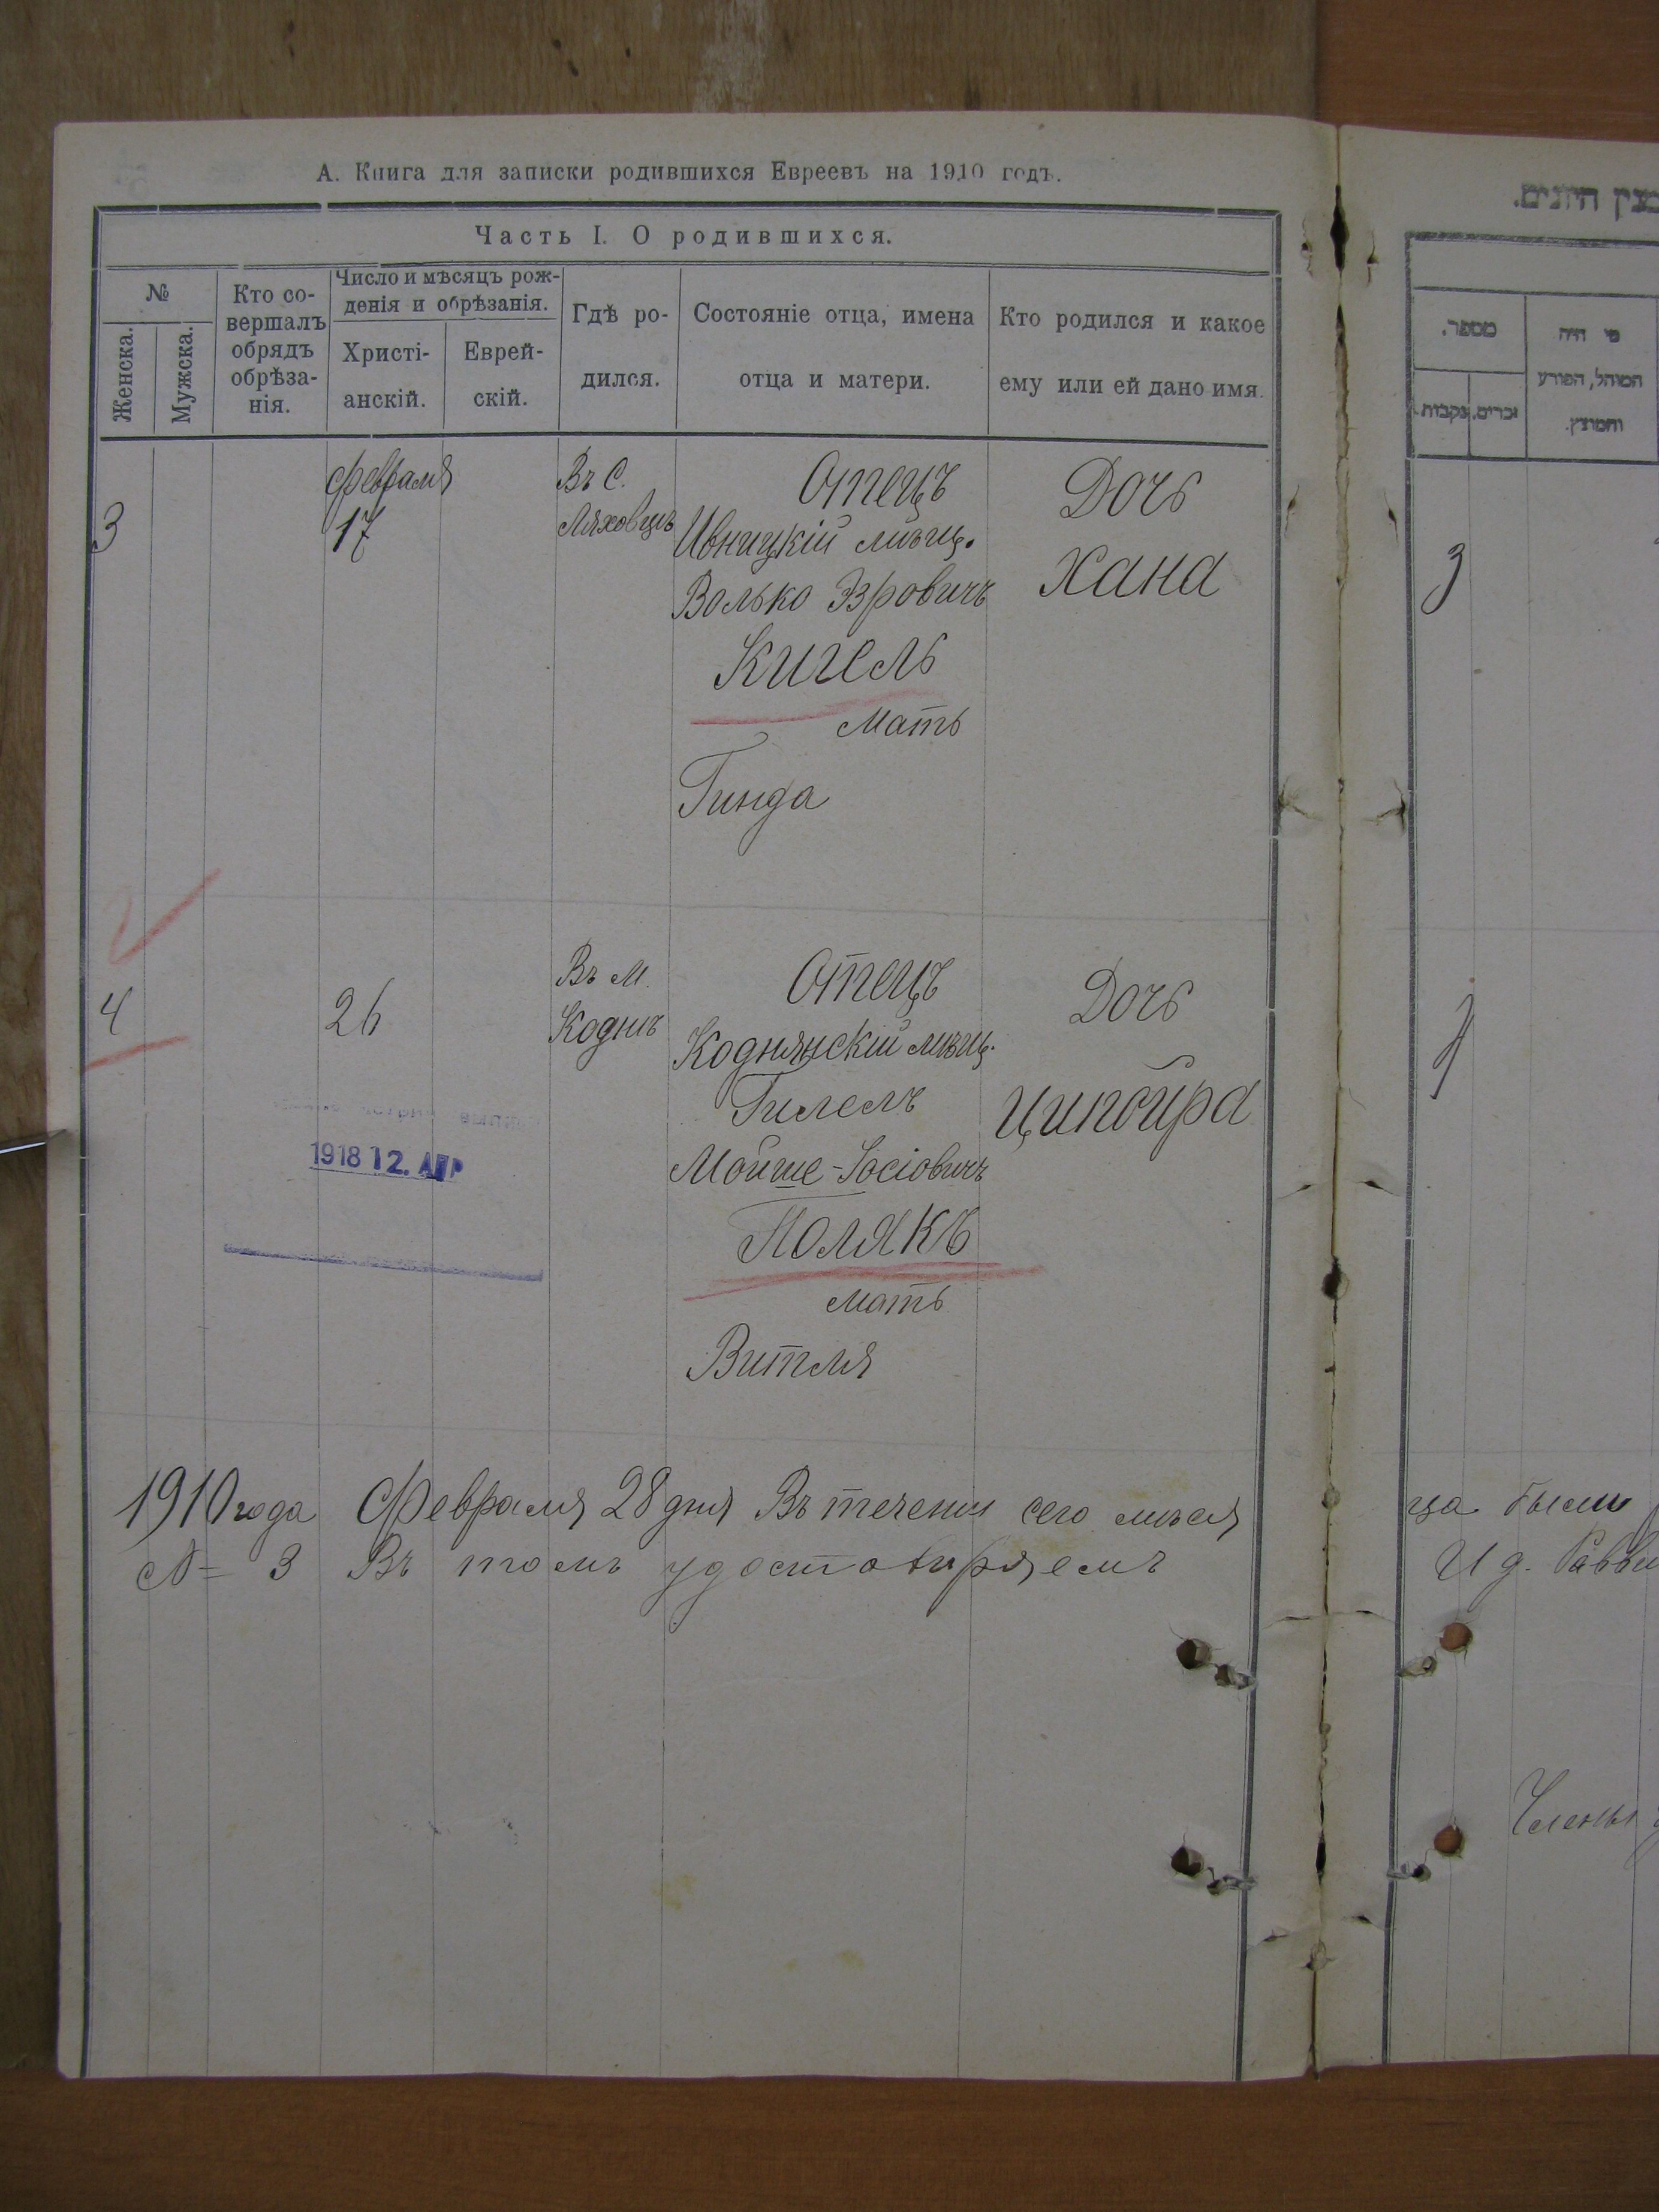 А. Книга для записки родившихся Евреевъ на 1910 годъ.
Часть I. О родившихся.
№
Женска.
Мужска.
Кто со-
вершалъ
обрядъ
обрѣза-
нія.
Число и мѣсяцъ рож-
денія и обрѣзанія.
Христі-
анскій.
Еврей-
скій.
Гдѣ ро-
дился.
Состояніе отца, имена
отца и матери.
Кто родился и какое
ему или ей дано имя.
3
Февраля
17
Въ С.
Ляховцъ
Отецъ
Ивницкій мѣщ.
Волько Эзровичъ
Кигель
Мать
Гинда
Дочь
Хана
4
26
Въ М.
Коднъ
Отецъ
Коднянскій мѣщ.
Гилелъ
Мойше-Іосіовичъ
Полякъ
Мать
Витля
Дочь
Ципойра
1918 12. АПР
1910 года Февраля 28 дня Въ течении сего мѣся
№ 3 Въ томъ удостовиряемъ
מספר.
זכרים.
נקבות
מי היה
המוהל, הפורע
והמוצץ.
3
ца были
И д. Равви
Члены